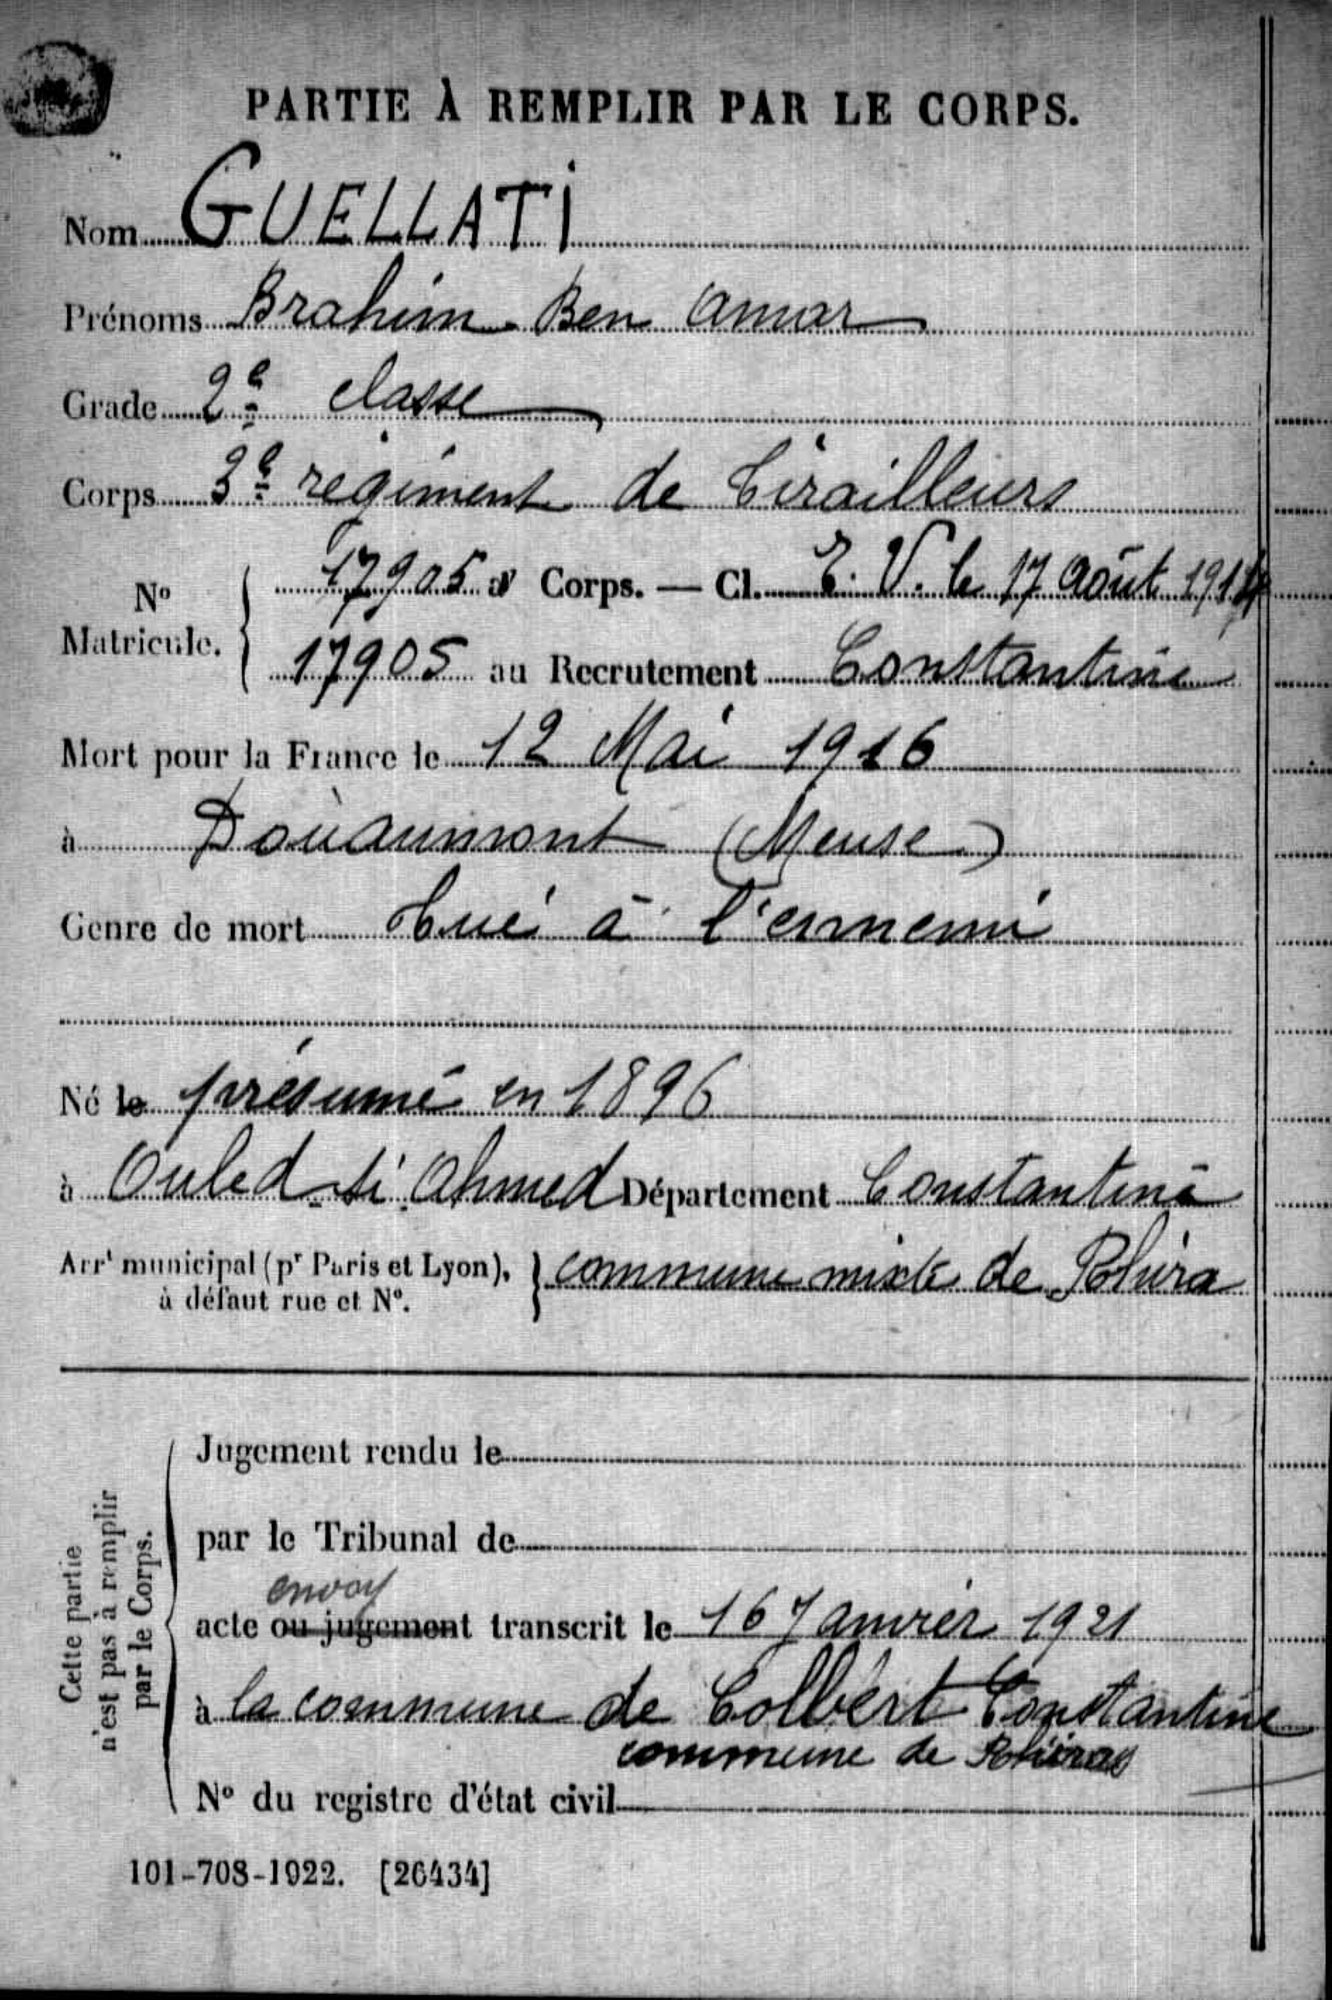 PARTIE À REMPLIR PAR LE CORPS.
Nom GUELLATI
Prénoms Brahim Ben Amar
Grade 2e classe
Corps 3e régiment de Tirailleurs
No Matricule. 17905 au Corps. — Cl. E. V. le 17 Août 1914
17905 au Recrutement Constantine
Mort pour la France le 12 Mai 1916
à Douaumont (Meuse)
Genre de mort tué à l'ennemi
Né le présumé en 1896
à Ouled Si Ahmed Département Constantine
Arrt municipal (pr Paris et Lyon), à défaut rue et No. commune mixte de Rhira
Cette partie n'est pas à remplir par le Corps.
Jugement rendu le
par le Tribunal de
envoy
acte ou jugement transcrit le 16 Janvier 1921
à la commune de Colbert Constantine
commune de Rhiras
No du registre d'état civil
101-708-1922. [26434]